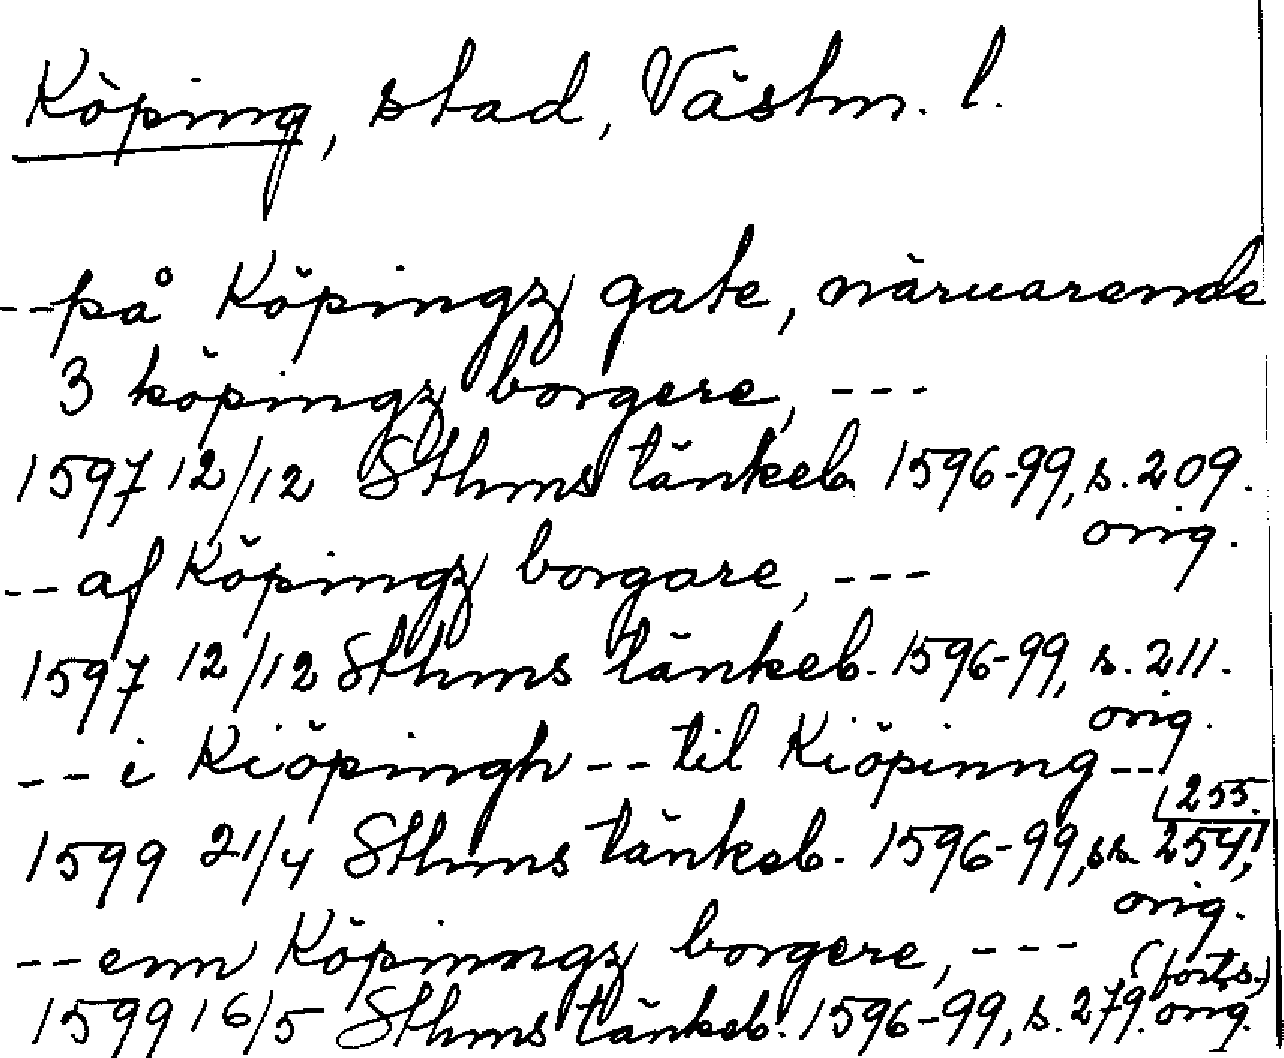 Köping, stad, Västm. l.
--på Köpingz gate, näruarende
3 köpingz borgere, ---
1597 12/12 Sthms tänkeb. 1596-99, s. 209.
orig.
--af Köpingz borgare, ---
1597 12/12 Sthms tänkeb. 1596-99, s. 211.
orig.
--i Kiöpingh--til Kiöpinng--
1599 21/4 Sthms tänkeb. 1596-99, ss. 254, 255.
orig.
--enn Köpinngz borgere, ---
1599 16/5 Sthms tänkeb. 1596-99, s. 279. orig.
(forts.)